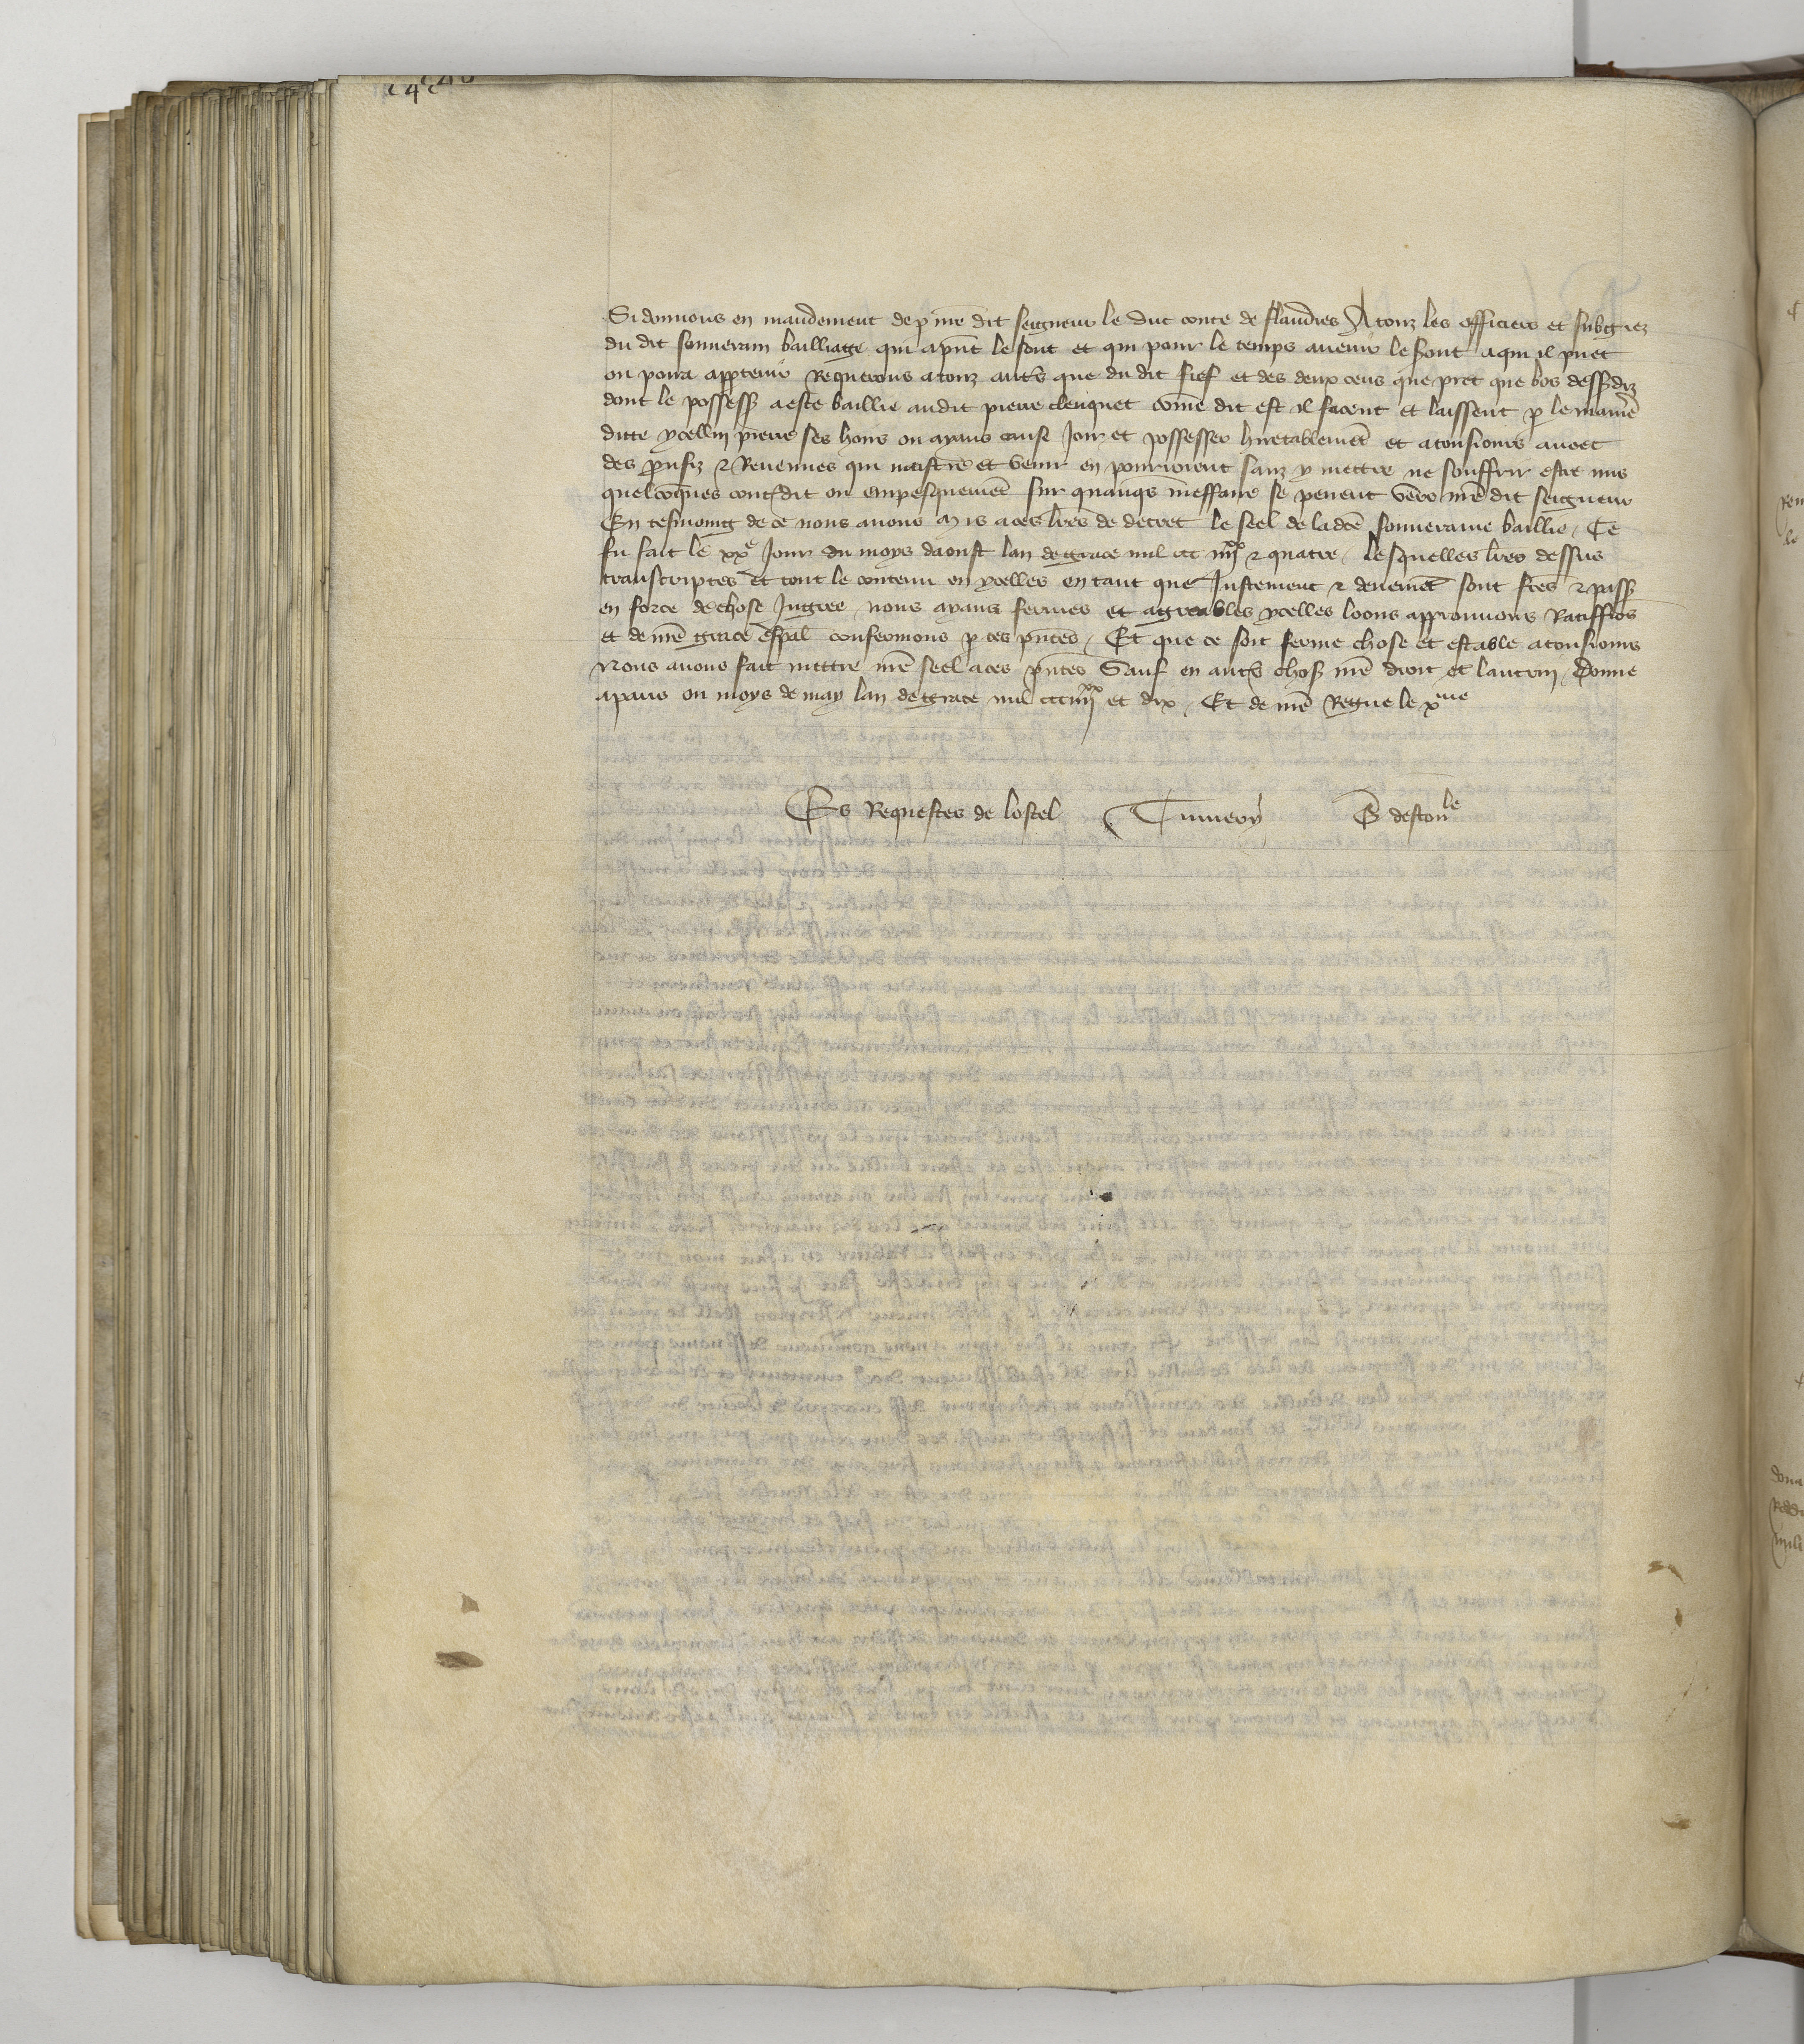 Si donnons en mandement de p nre dit seigneur le duc conte de flandres A touz les officiers et subgiez
du dit souuerain bailliage qui apnt le sont et qui pour le temps auenir le seront a qui il puet
ou pourra apptenir Requerons a touz autrs que du dit fief et des deux cens que pret que bos dessusdiz
dont le possess a este baillie audit pierre clenquet come dit est il facent et laissent p le maniere
ditte ycellui pierre ses hoirs ou ayans cause Joir et possesser hiretablemet et a tousiours auoec
des prousfiz & Reuenues qui naistre et venir en pourroient sanz y mettre ne souffrir estre mis
quelcoques contredit ou empeschement sur quanqs meffaire se peuent vers nre dit seigneur
En tesmoing de ce nous auons Mis a ces lres de decret le seel de ladte souueraine baillie / Ce
fu fait le xxe Jour du moys daoust lan de grace mil ccc iiijxx & quatre / lesquelles lres dessus
transcriptes et tout le contenu en ycelles en tant que Justement & deuemet sont fces & pass
en force de chose Jugiee nous ayans fermes et agreables ycelles loons approuuons Ratiffios
et de nre grace espal confermons p ces pntes / Et que ce soit ferme chose et estable a tousiours
Nous auons fait mettre nre seel a ces pntes Sauf en autrs choss nre droit et lautruy / Donne
a paris ou moys de may lan de grace mil ccciiijxx et dix / Et de nre Regne le xme
Es Requestes de lostel
S destoule